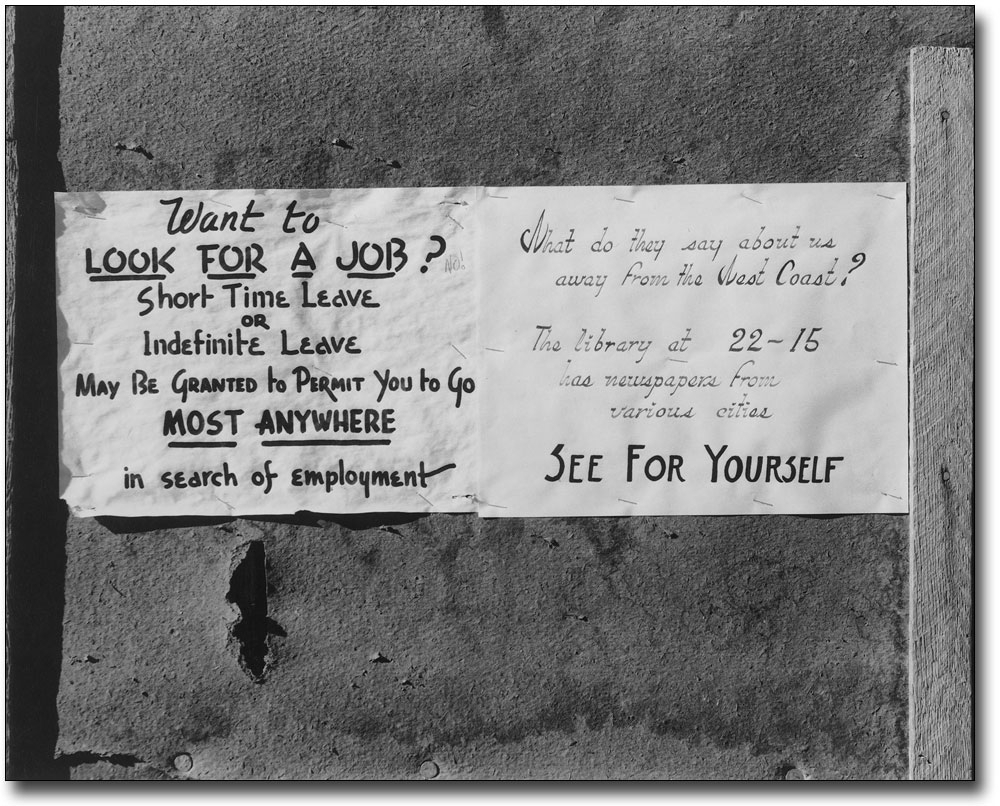 Want to
LOOK FOR A JOB?
NO!
Short Time Leave
OR
Indefinite Leave
May Be Granted to Permit You to Go
MOST ANYWHERE
in search of employment
What do they say about us
away from the West Coast?
The library at 22-15
has newspapers from
various cities
SEE FOR YOURSELF